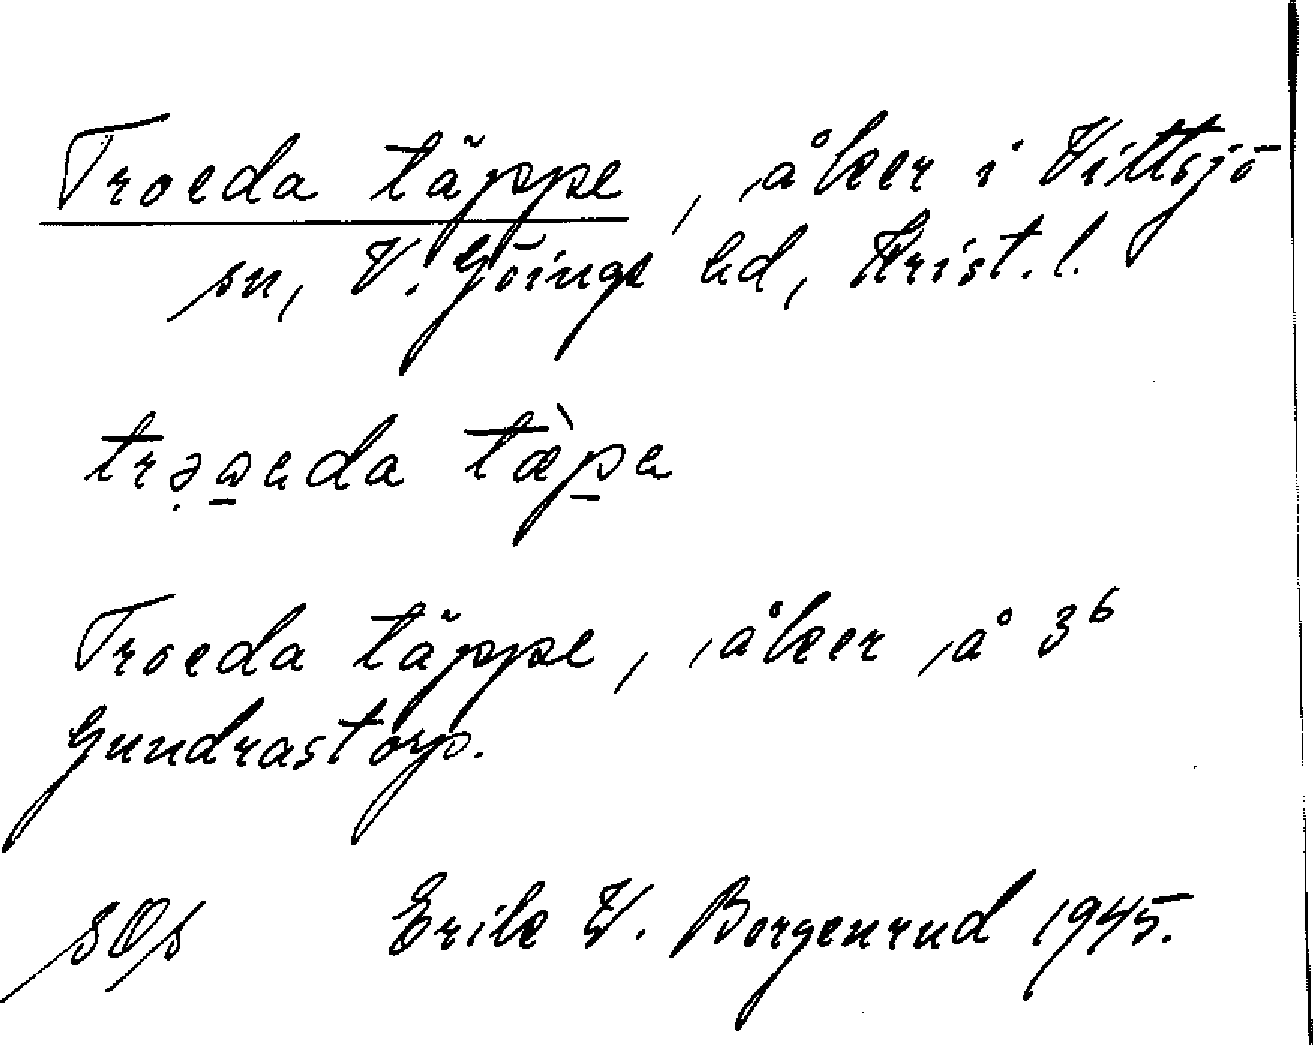 Troeda täppe, åker i Vittsjö
sn, V. Göinge hd, Krist. l.
trə̣a̱eda tæ̀p̱a
Troeda täppe, åker å 3⁶
Gundrastorp.
sOs Erik W. Borgenrud 1945.